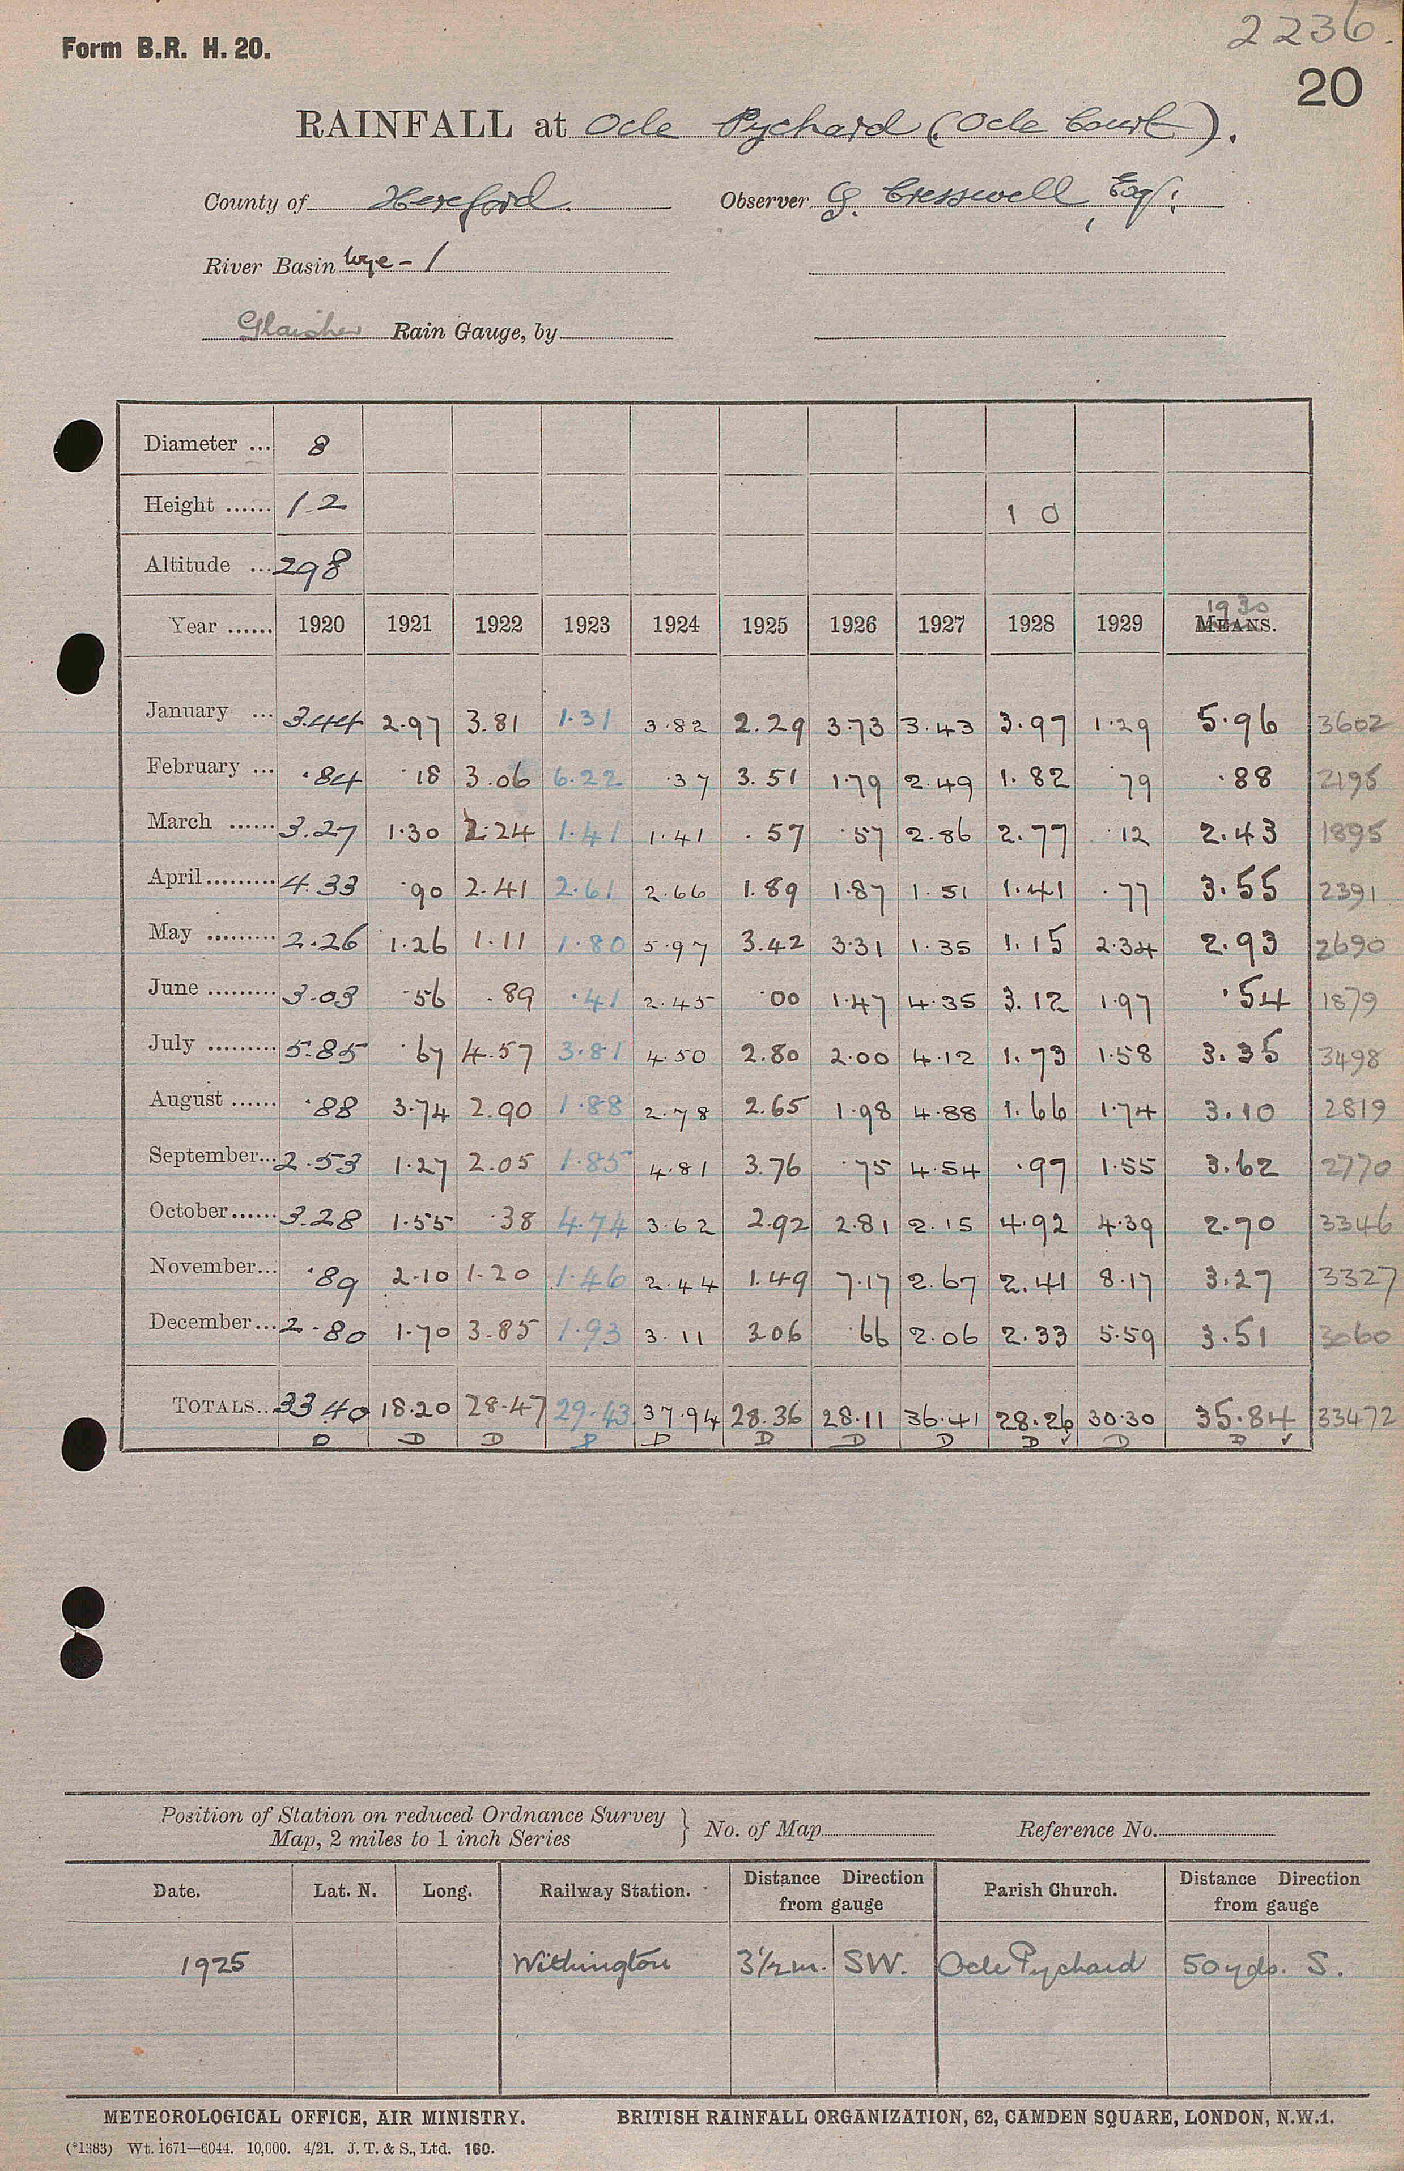 2236.
Form B.R. H. 20.
20
RAINFALL at Ocle Pychard (Ocle Court).
County of Hereford. Observer G. Cresswell, Esq.
River Basin Wye - 1
Glaisher Rain Gauge, by
Diameter ... 8
Height ...... 1 2 1 0
Altitude ... 298
1930
Year ...... 1920 1921 1922 1923 1924 1925 1926 1927 1928 1929 MEANS.
January ... 3.44 2.97 3.81 1.31 3.82 2.29 3.73 3.43 3.97 1.29 5.96 3602
February ... .84 .18 3.06 6.22 .37 3.51 1.79 2.49 1.82 .79 .88 2195
March ...... 3.27 1.30 2.24 1.41 1.41 .57 .57 2.86 2.77 .12 2.43 1895
April ......... 4.33 .90 2.41 2.61 2.66 1.89 1.87 1.51 1.41 .77 3.55 2391
May ......... 2.26 1.26 1.11 1.80 5.97 3.42 3.31 1.35 1.15 2.34 2.93 2690
June ......... 3.03 .56 .89 .41 2.45 .00 1.47 4.35 3.12 1.97 .54 1879
July ......... 5.85 .67 4.57 3.81 4.50 2.80 2.00 4.12 1.73 1.58 3.35 3498
August ...... .88 3.74 2.90 1.88 2.78 2.65 1.98 4.88 1.66 1.74 3.10 2819
September... 2.53 1.27 2.05 1.85 4.81 3.76 .75 4.54 .97 1.55 3.62 2770
October ...... 3.28 1.55 .38 4.74 3.62 2.92 2.81 2.15 4.92 4.39 2.70 3346
November... .89 2.10 1.20 1.46 2.44 1.49 7.17 2.67 2.41 8.17 3.27 3327
December ... 2.80 1.70 3.85 1.93 3.11 3.06 .66 2.06 2.33 5.59 3.51 3060
TOTALS.. 33.40 18.20 28.47 29.43 37.94 28.36 28.11 36.41 28.26 30.30 35.84 33472
D D D D D D D D D ✓ D D ✓
Position of Station on reduced Ordnance Survey Map, 2 miles to 1 inch Series } No. of Map Reference No.
Date. Lat. N. Long. Railway Station. Distance Direction from gauge Parish Church. Distance Direction from gauge
1925 Withington 3½m. SW. Ocle Pychard 50 yds. S.
METEOROLOGICAL OFFICE, AIR MINISTRY. BRITISH RAINFALL ORGANIZATION, 62, CAMDEN SQUARE, LONDON, N.W.1.
(*1383) Wt. 1671—6044. 10,000. 4/21. J. T. & S., Ltd. 160.